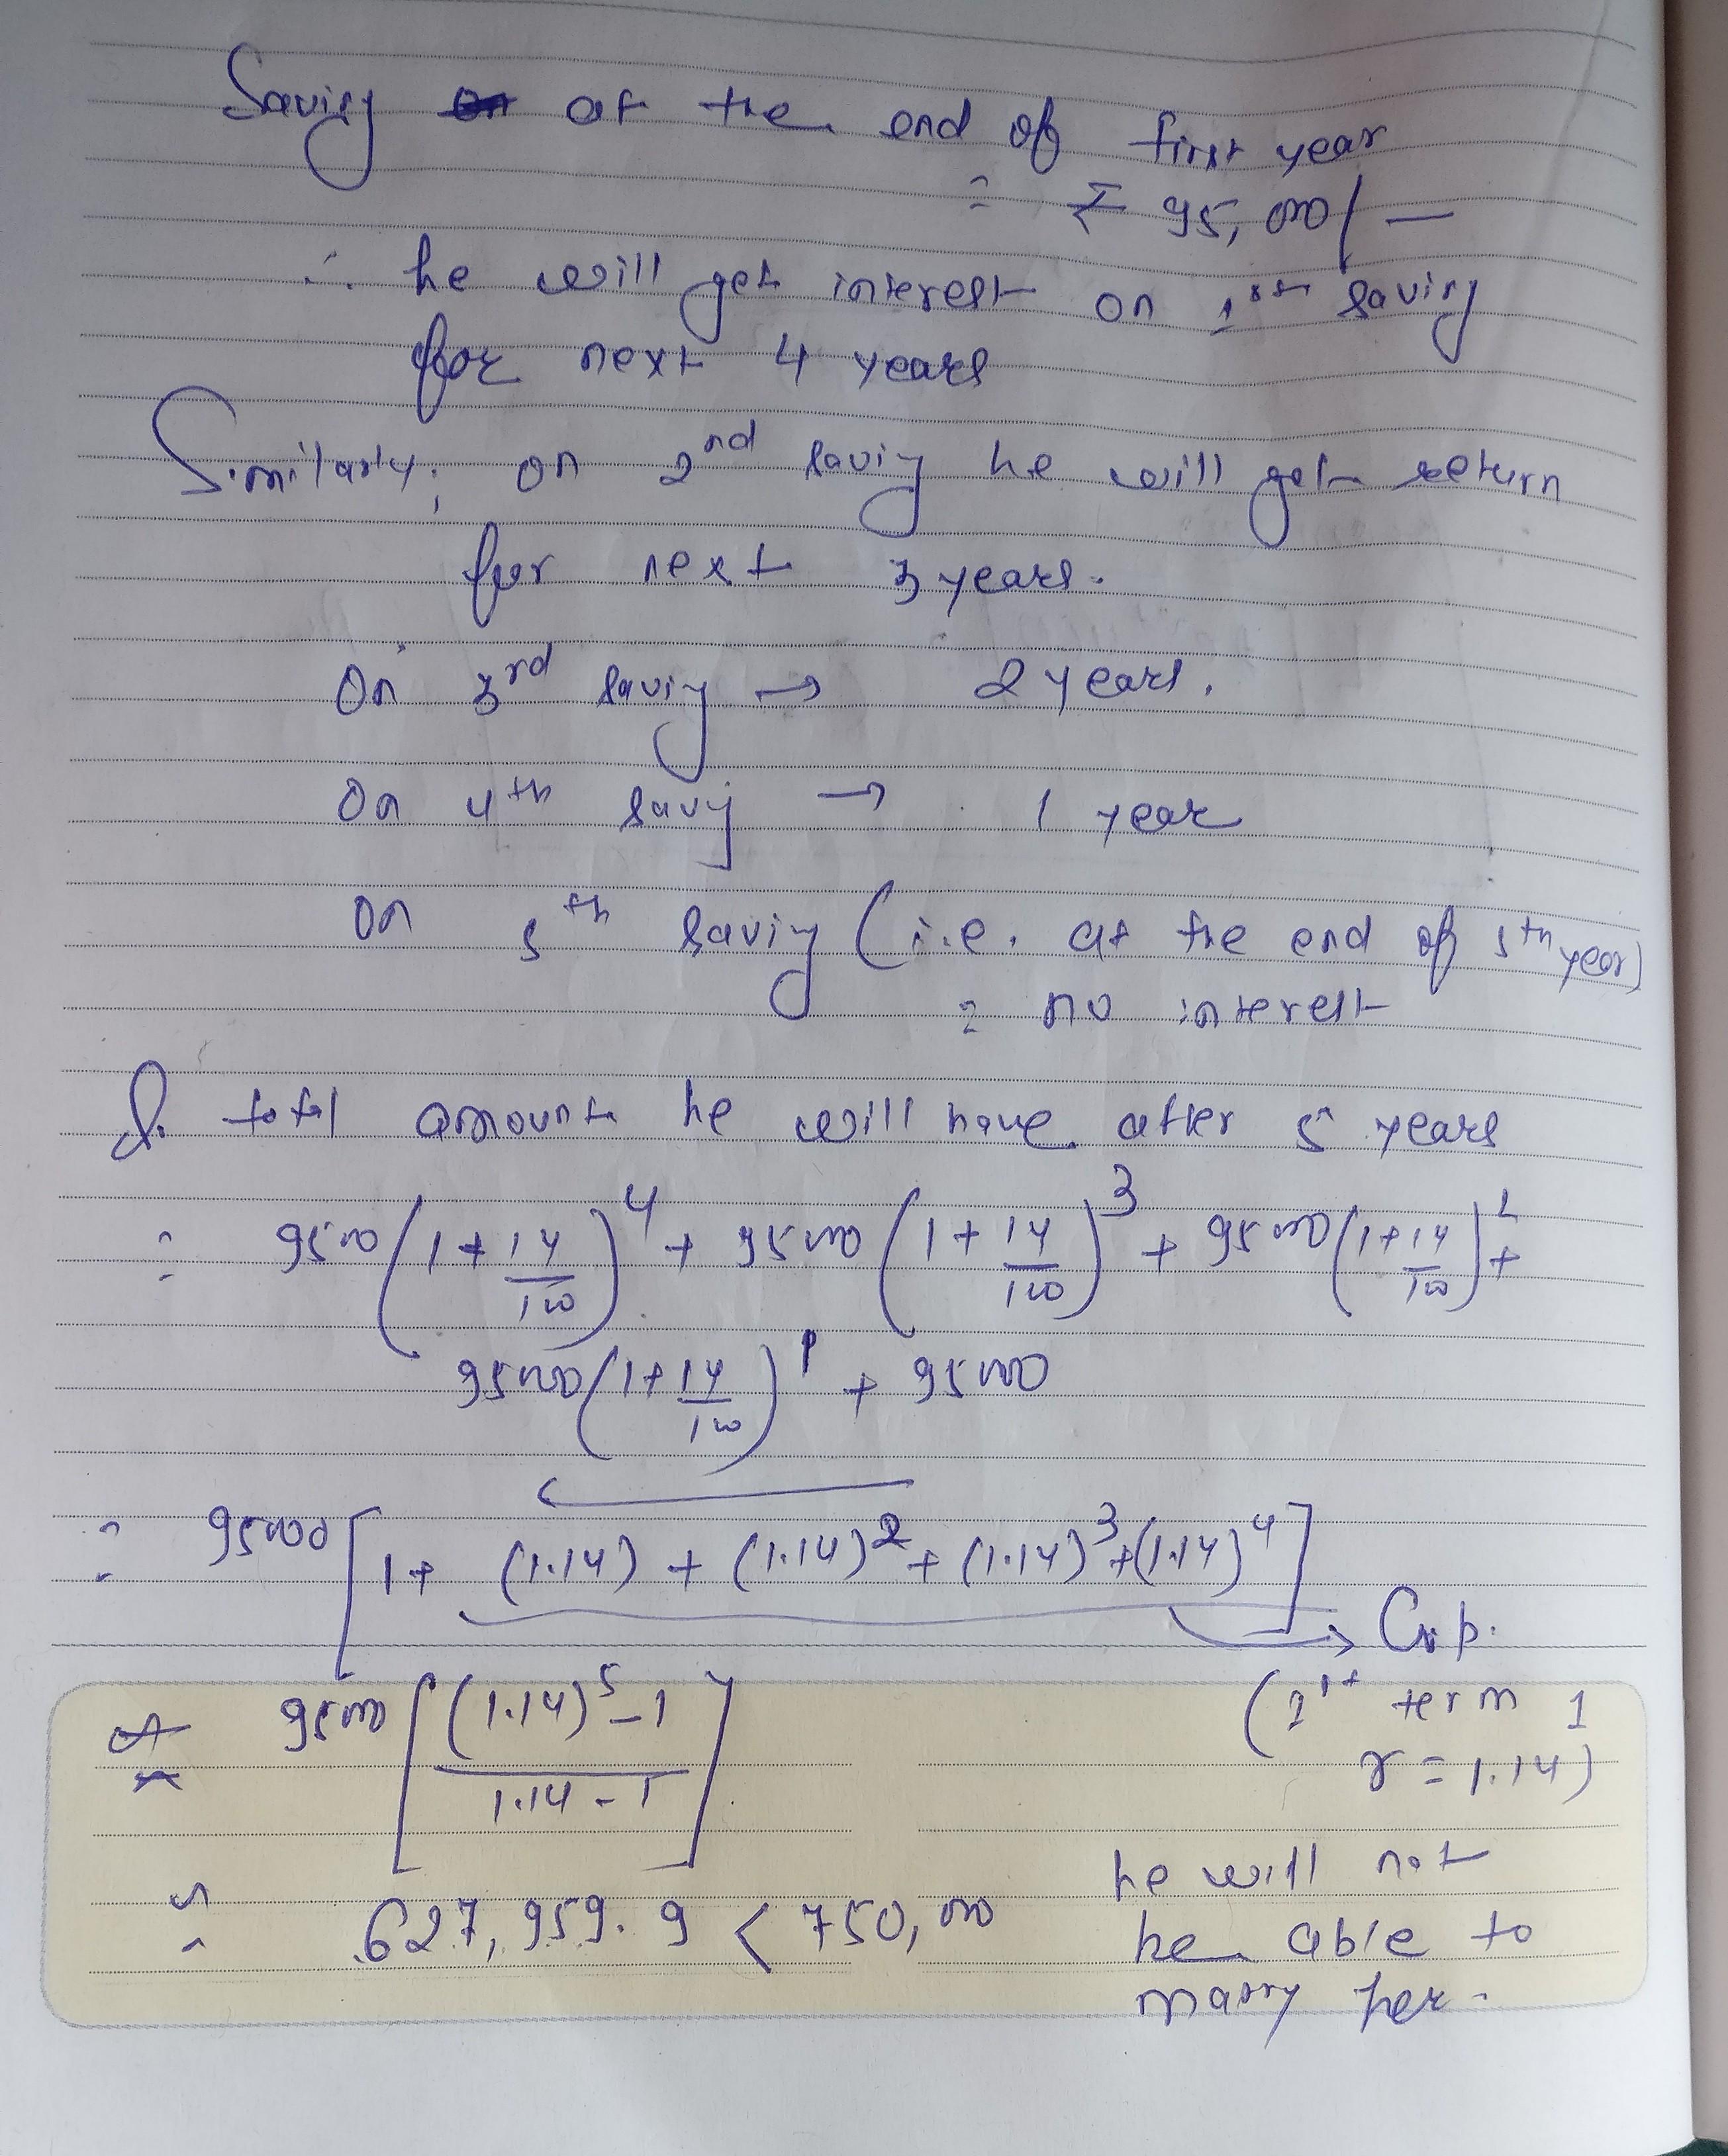 Saving at the end of first year
= ₹ 95,000/-
∴ he will get interest on 1st saving
for next 4 years
Similarly; on 2nd saving he will get return
for next 3 years.
On 3rd saving → 2 years.
On 4th saving → 1 year
On 5th saving (i.e. at the end of 5th year)
= no interest
So total amount he will have after 5 years
= 95000(1+14/100)^4 + 95000(1+14/100)^3 + 95000(1+14/100)^2 +
95000(1+14/100)^1 + 95000
= 95000[1+ (1.14) + (1.14)^2 + (1.14)^3 + (1.14)^4]
→ G.p.
(1st term 1
r = 1.14)
95000[((1.14)^5 - 1)/(1.14 - 1)]
= 627,959.9 < 750,000
he will not
be able to
marry her.